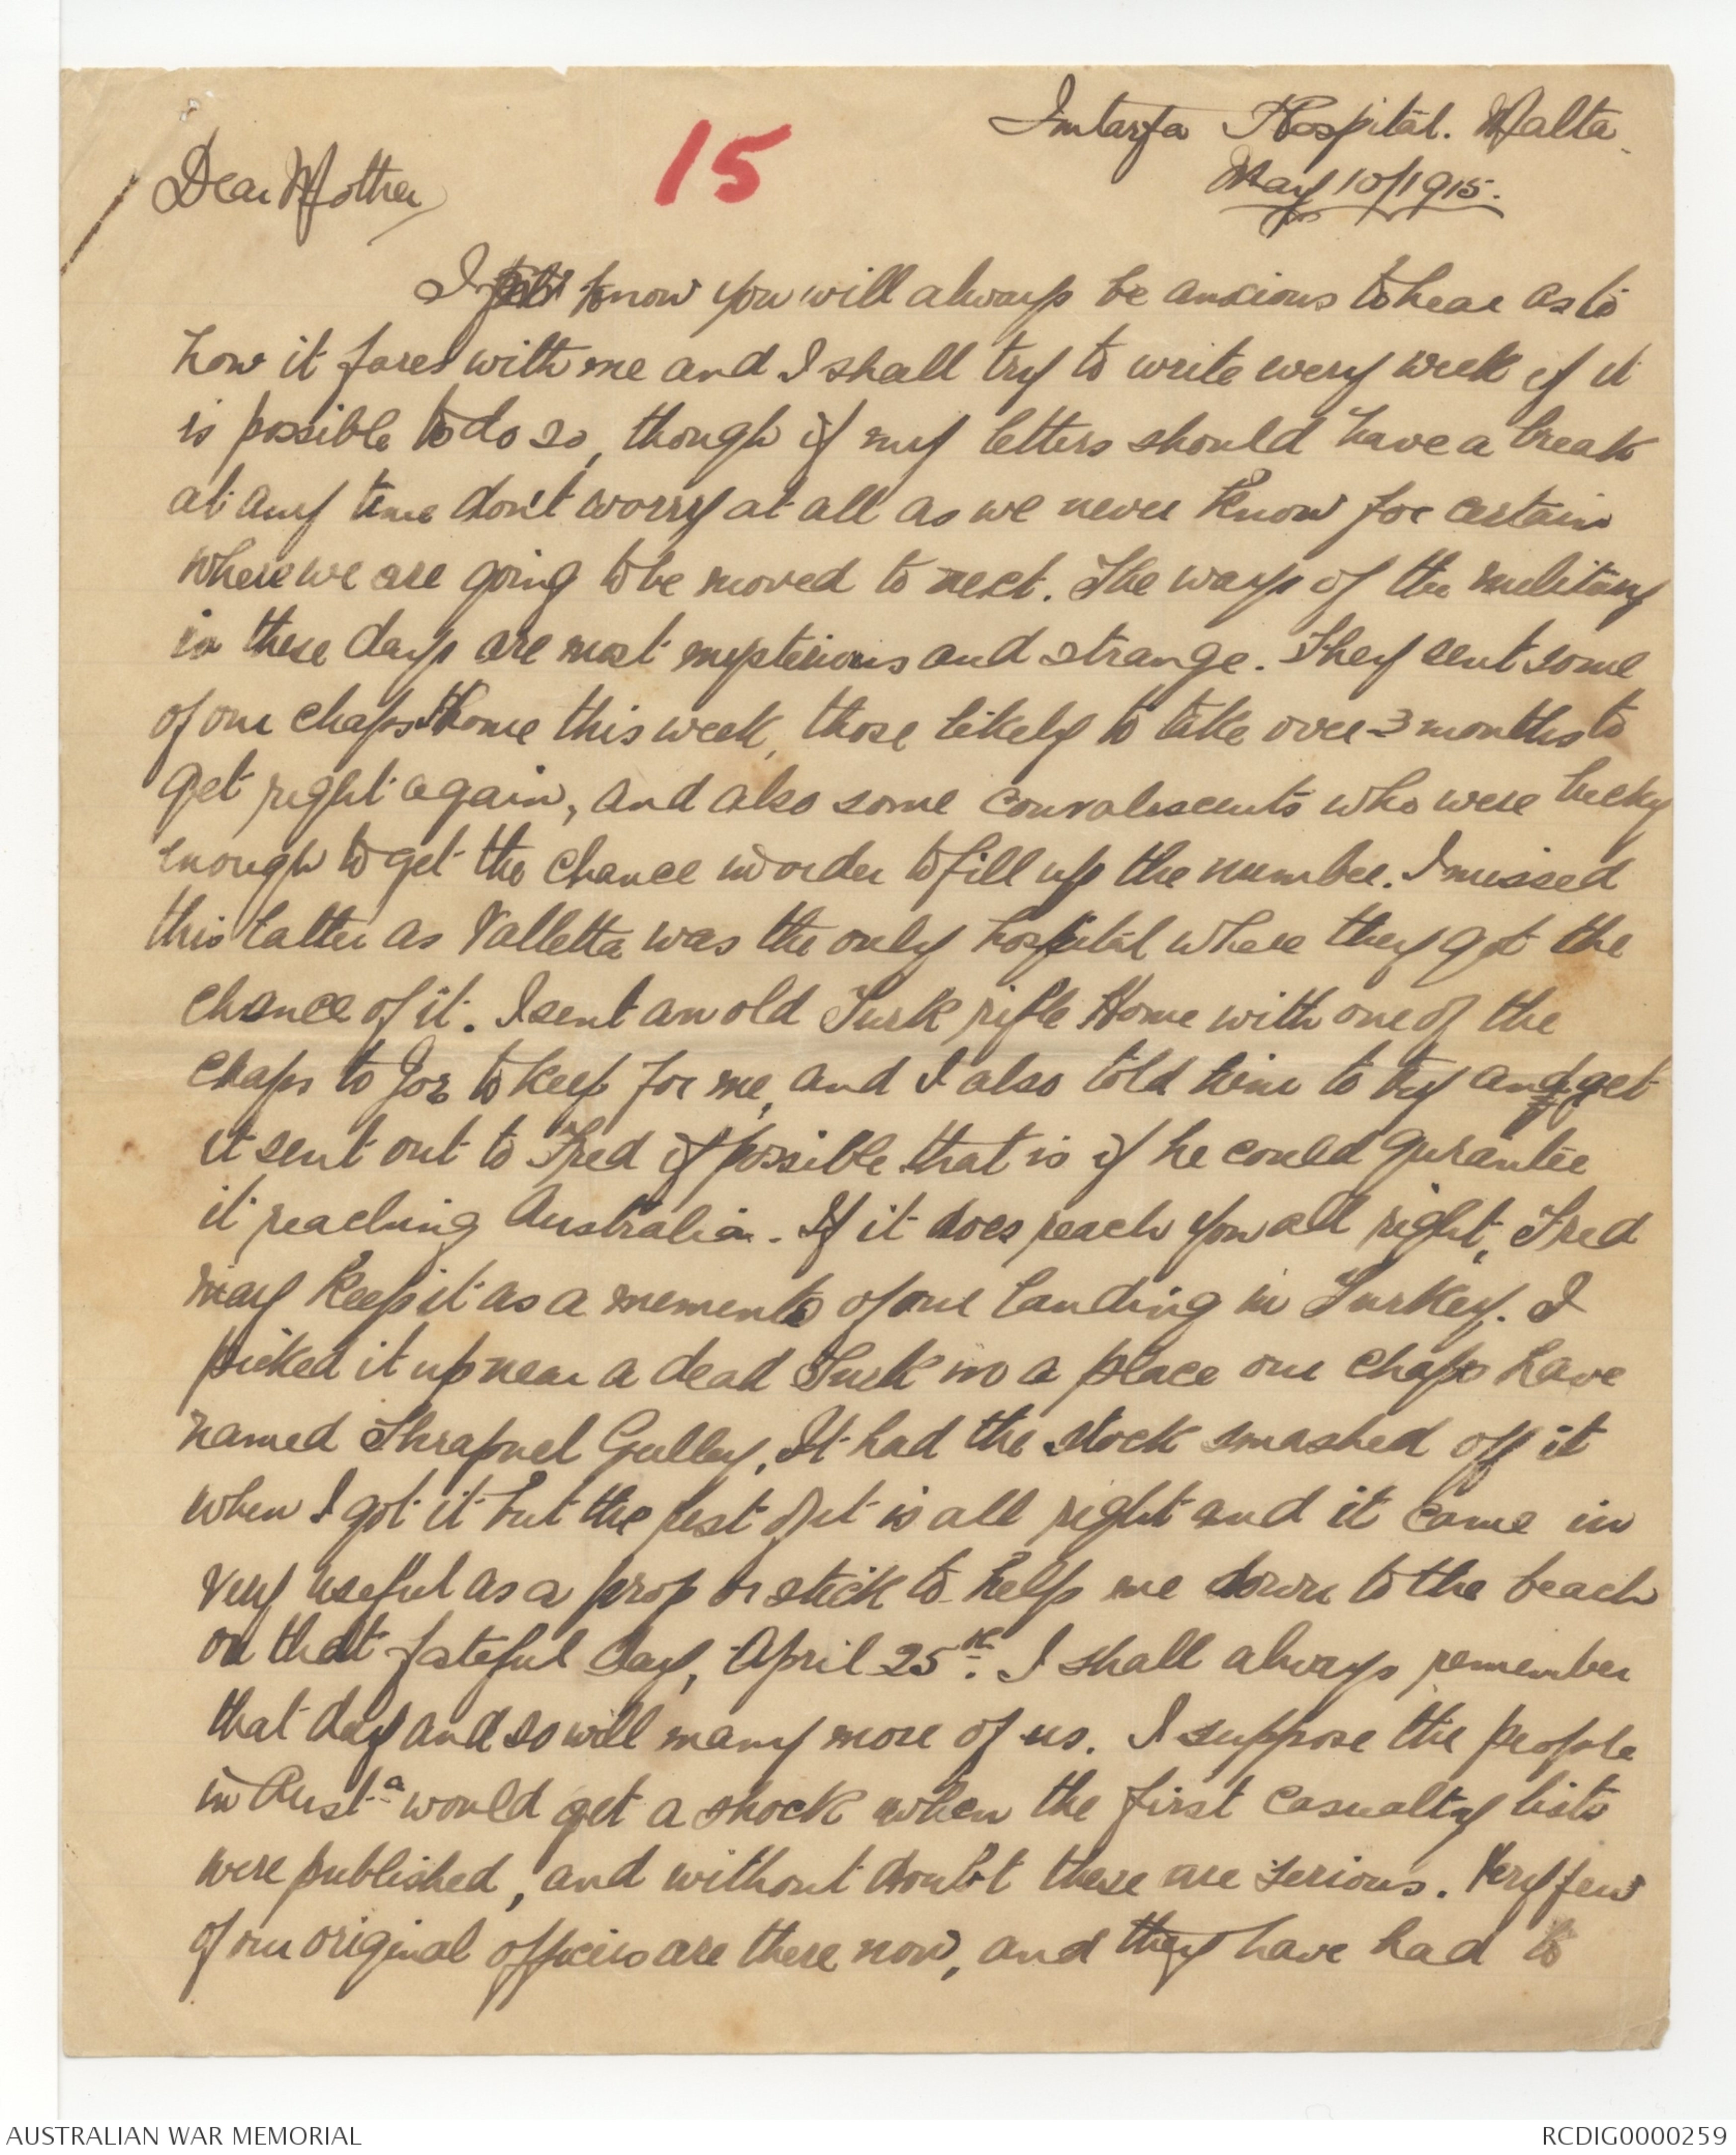 15
Imtarfa Hospital. Malta.
May 10/1915.
Dear Mother,
I know you will always be anxious to hear as to
how it fares with me and I shall try to write every week if it
is possible to do so, though if my letters should have a break
at any time don't worry at all as we never know for certain
where we are going to be moved to next. The ways of the military
in these days are most mysterious and strange. They sent some
of our chaps Home this week, those likely to take over 3 months to
get right again, and also some convalescents who were lucky
enough to get the chance in order to fill up the number. I missed
this latter as Valletta was the only hospital where they got the
chance of it. I sent an old Turk rifle Home with one of the
chaps to Joe to keep for me, and I also told him to try and get
it sent out to Fred if possible that is if he could gurantee
it reaching Australia. If it does reach you all right, Fred
may keep it as a memento of our landing in Turkey. I
picked it up near a dead Turk in a place our chaps have
named Shrapnel Gulley. It had the stock smashed off it
when I got it but the rest of it is all right and it came in
very useful as a prop or stick to help me down to the beach
on that fateful day, April 25th. I shall always remember
that day and so will many more of us. I suppose the people
in Austa would get a shock when the first casualty lists
were published, and without doubt these are serious. Very few
of our original officers are there now, and they have had to
AUSTRALIAN WAR MEMORIAL
RCDIG0000259